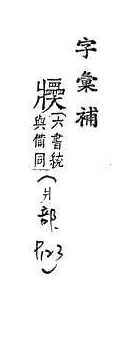 字彙補
六書統
與備同
(爿部. P123)